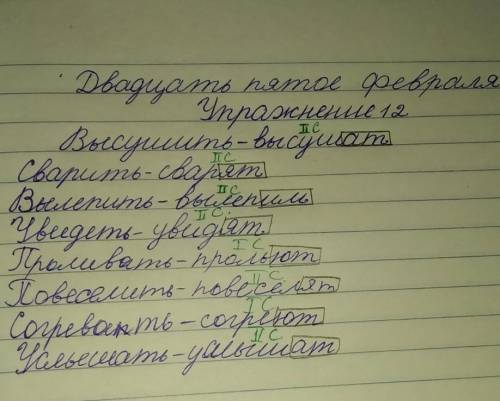 Двадцать пятое февраля
Упражнение 12
II с
Высушить - высушат
II с
Сварить - сварят
II с
Вылепить - вылепиль
II с
Увидеть - увидят
I с
Проливать - прольют
II с
Повеселить - повеселят
I с
Согревать - согреют
II с
Услышать - услышат